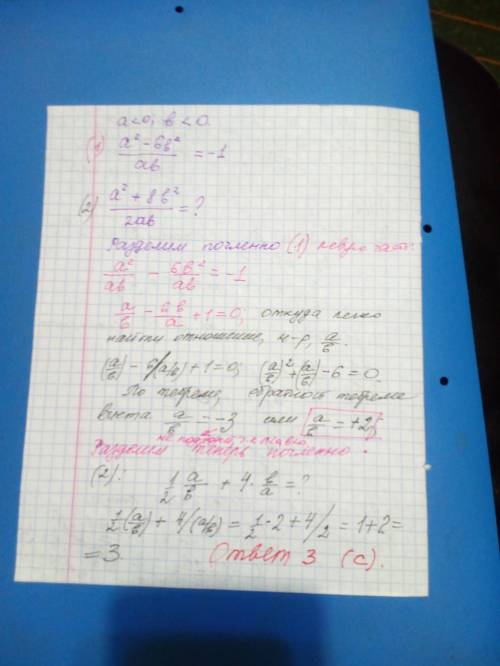 a<0; в<0.
(1) (a² - 6в²)/(aв) = -1
(2) (a² + 8в²)/(2aв) = ?
Разделим почленно (1) левую часть:
a²/(aв) - 6в²/(aв) = -1
a/в - 6в/a + 1 = 0; откуда легко
найти отношение, н-р, a/в.
(a/в) - 6/(a/в) + 1 = 0; (a/в)² + (a/в) - 6 = 0.
По теореме, обратной теореме
Виета a/в = -3 или a/в = +2;
не подходит, т.к.
Разделим теперь почленно
(2): 1/2 a/в + 4 · в/a = ?
1/2 (a/в) + 4/(a/в) = 1/2 · 2 + 4/2 = 1 + 2 =
= 3. Ответ 3 (c).